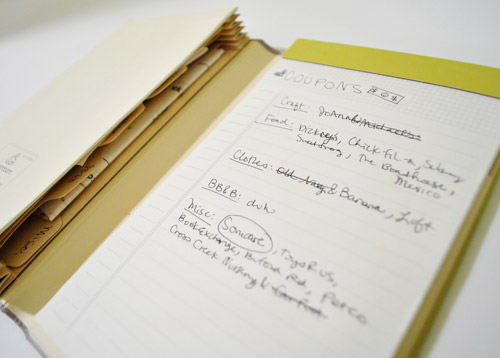 COUPONS
Craft: JoAnn &
Food: Dickeys, Chick fil-a, Subway,
The Boathouse,
Mexico
Clothes: Old Navy & Banana, Loft
BB&B: duh
Misc: Sonicare, Toys R Us,
Book Exchange, Buford Rd, Petco
Cross Creek Nursery &
Misc